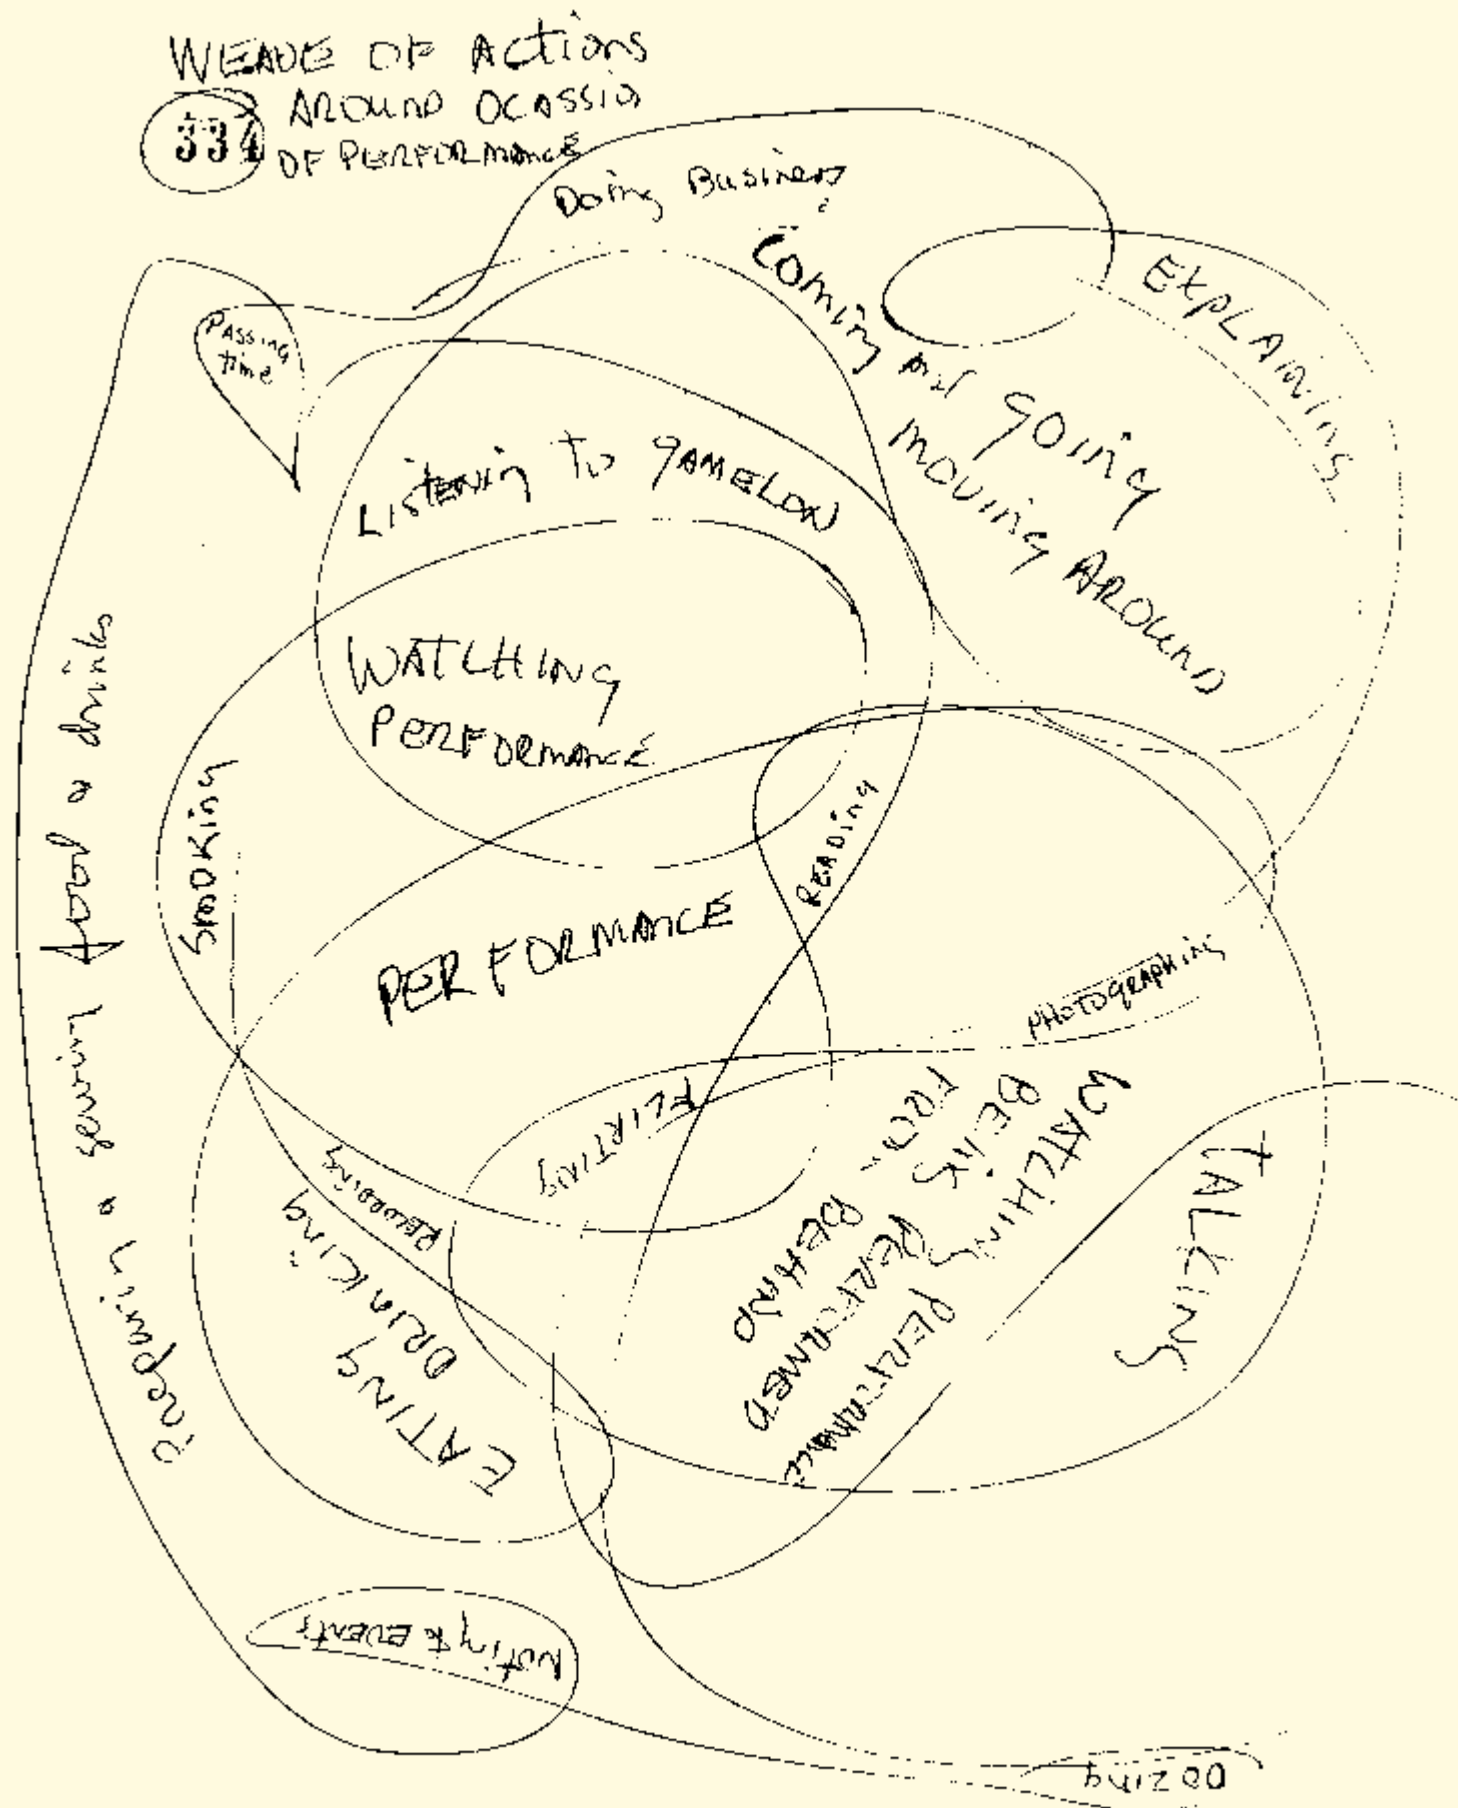 WEAVE OF Actions
AROUND OCASSIO
334 OF PERFORMANCE
Doing Business
Coming and GOING
MOVING AROUND
EXPLAINING
PASSING
time
LISTENING TO GAMELON
WATCHING
PERFORMANCE
READING
SMOKING
PERFORMANCE
PHOTOGRAPHING
FLIRTING
WATCHING PERFORMANCE
BEING PERFORMED
FROM BEHIND
TALKING
RECORDING
EATING
DRINKING
Preparing & serving food & drinks
Noting & events
DOZING